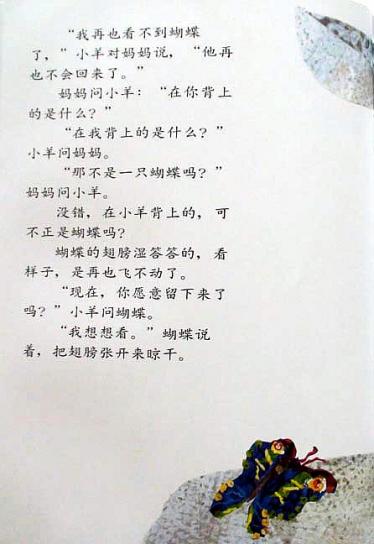 “我再也看不到蝴蝶
了，”小羊对妈妈说，“他再
也不会回来了。”
妈妈问小羊：“在你背上
的是什么？”
“在我背上的是什么？”
小羊问妈妈。
“那不是一只蝴蝶吗？”
妈妈问小羊。
没错，在小羊背上的，可
不正是蝴蝶吗？
蝴蝶的翅膀湿答答的，看
样子，是再也飞不动了。
“现在，你愿意留下来了
吗？”小羊问蝴蝶。
“我想想看。”蝴蝶说
着，把翅膀张开来晾干。